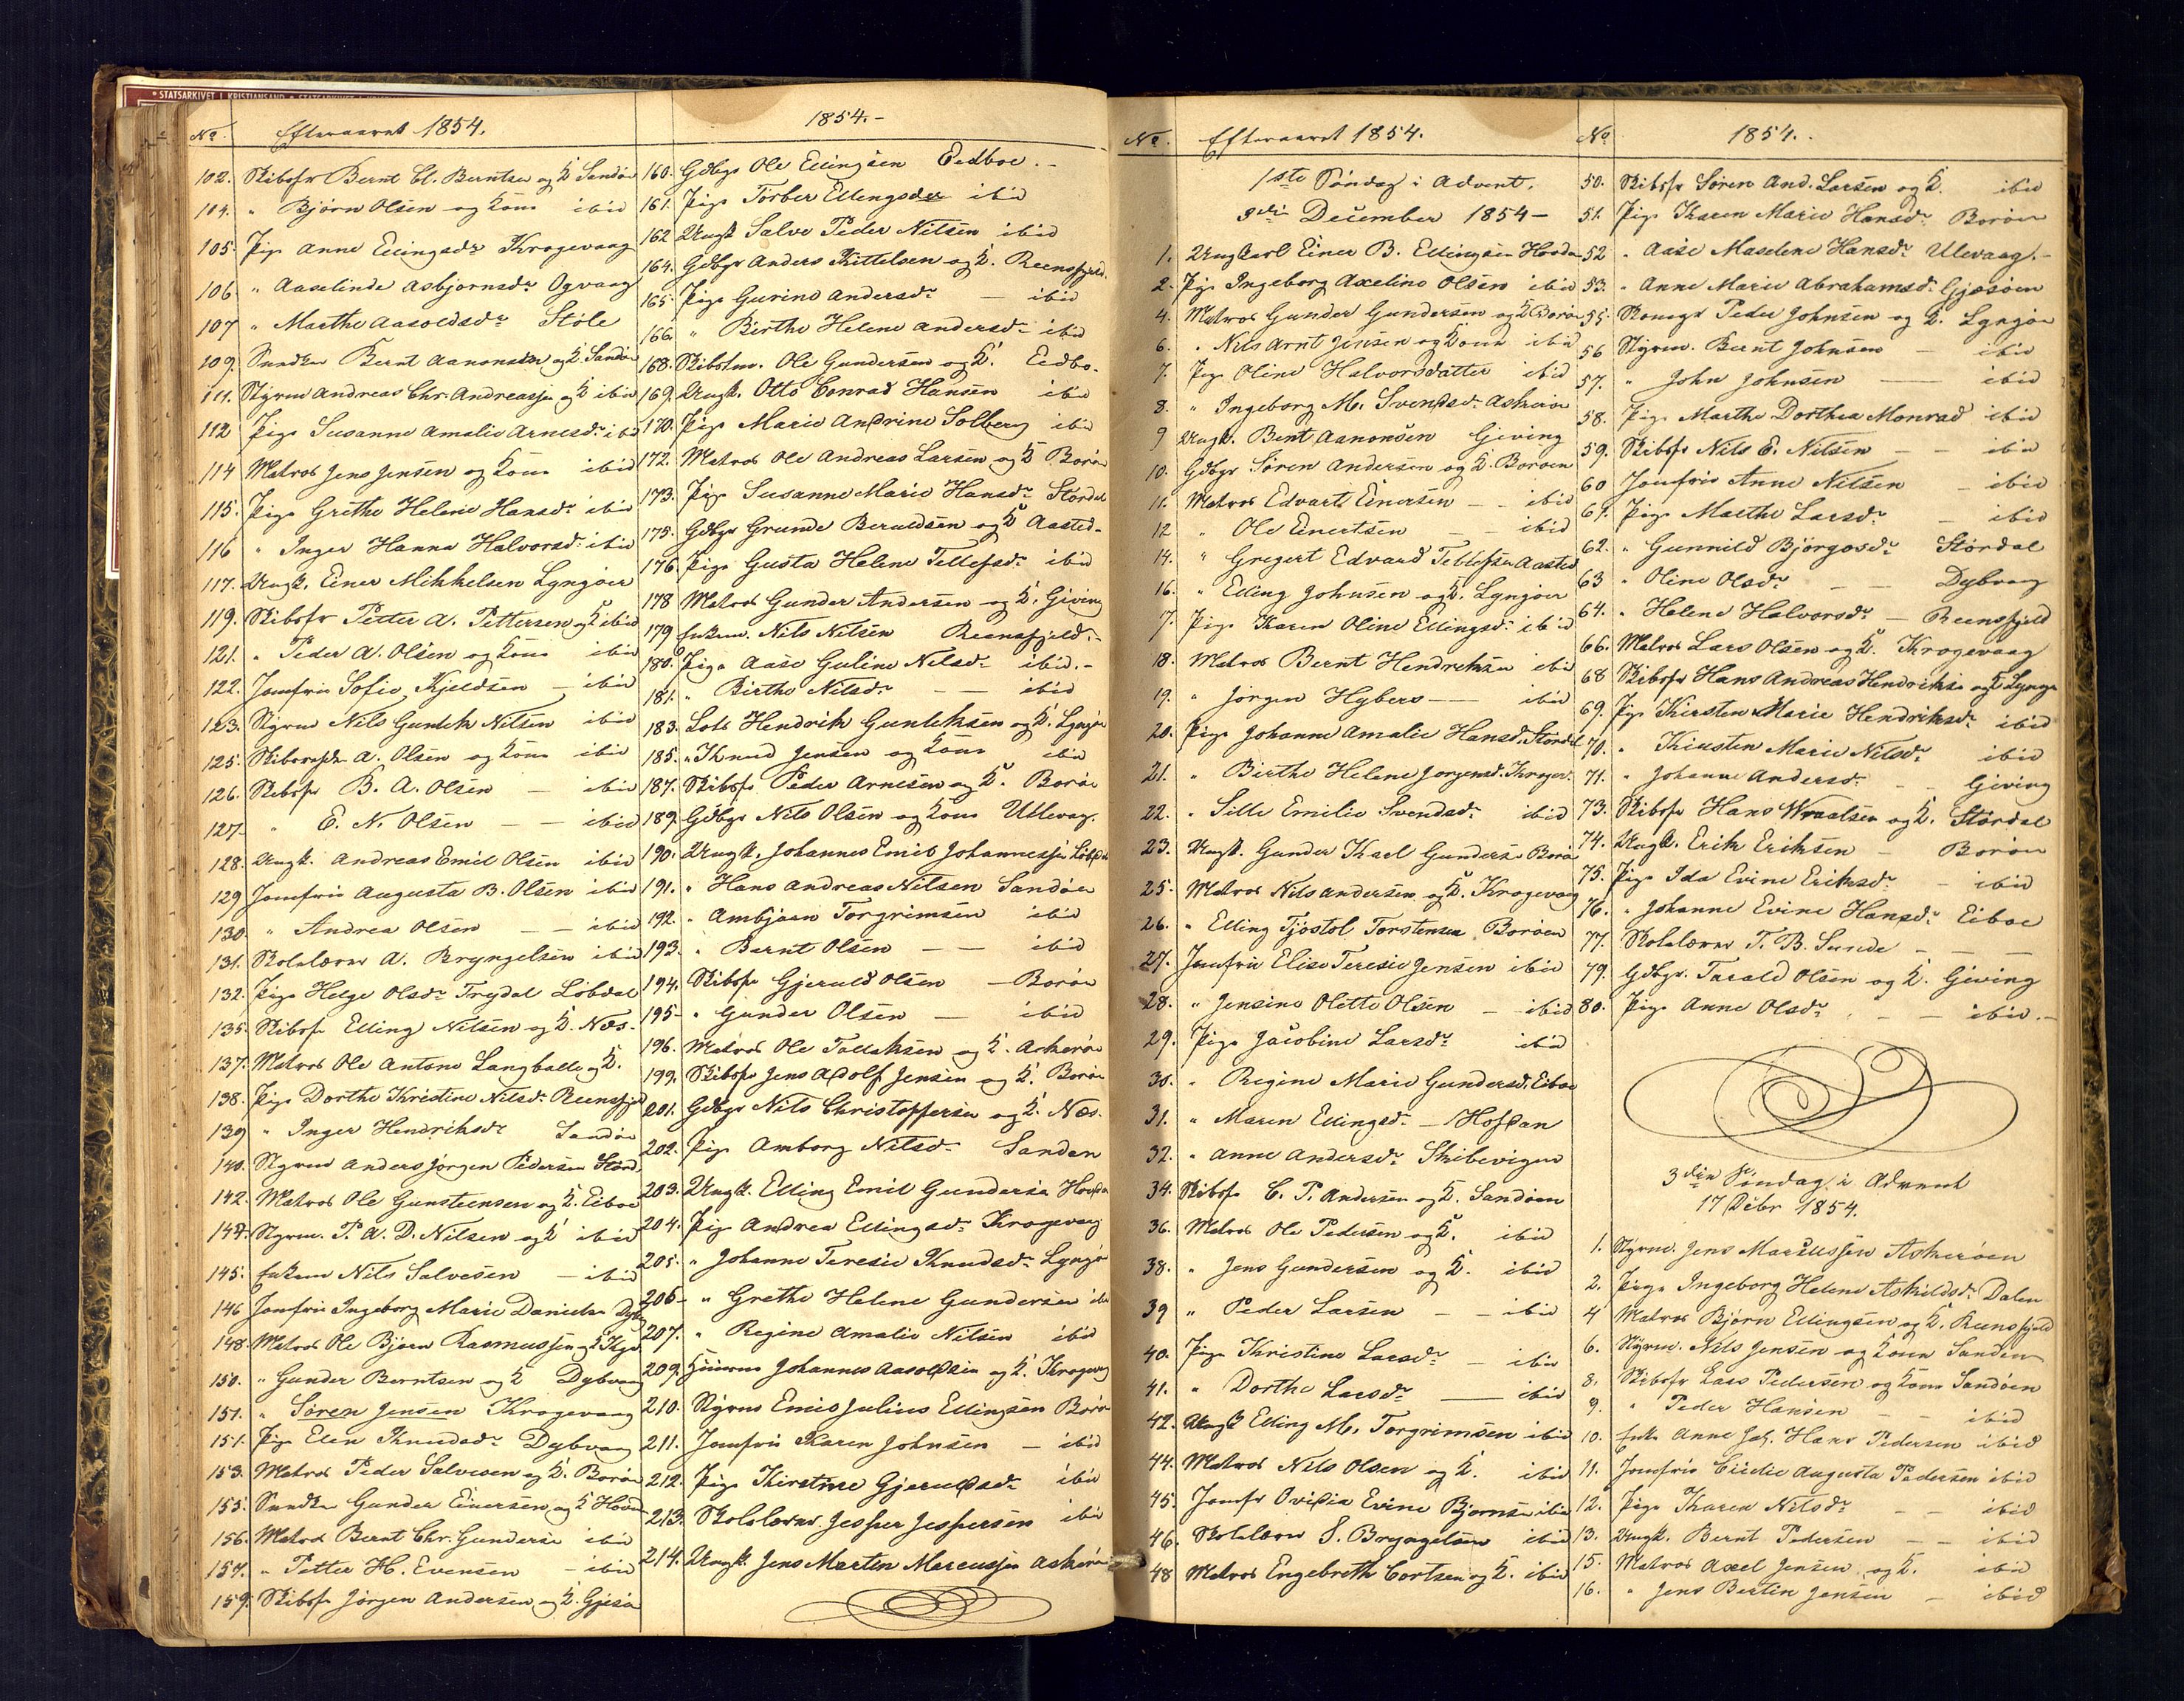 STATSARKIVET I KRISTIANSAND
No. Efteraaret 1854.
102. Skibsfr Bernt Cl. Berntsen og K Sandøe
104. " Bjørn Olsen og Kone ibid
105. Pige Anne Ellingsdr Krogevaag
106 " Aaselinde Asbjørnsdr Ogvaag
107 " Marthe Aasoldsdr Støle
109. Bernt Aanonsen og K Sandøe
111. Styrm Andreas Chr. Andreassen og K ibid
112 Pige Susanne Amalie Arnesdr ibid
114 Matros Jens Jensen og Kone ibid
115. Pige Grethe Helene Hansdr ibid
116 " Inger Hanna Halvorsdr ibid
117. Ungk. Einer Mikkelsen Lyngøer
119. Skibsfr Petter A. Pettersen og K ibid
121. " Peder A. Olsen og Kone ibid
122. Jomfru Sofie Kjeldsen — ibid
123. Styrm Nils Gunlek Nilsen ibid
125. A. Olsen og Kone ibid
126. Skibsfr B. A. Olsen — ibid
127 " E. N. Olsen — — ibid
128. Ungk. Andreas Emil Olsen ibid
129 Jomfru Augusta B. Olsen ibid
130. " Andrea Olsen — — ibid
131. Skolelærer A. Bryngelsen ibid
132. Pige Helge Olsdr Trydal Løbdal
135. Skibsfr Elling Nilsen og K. Næs.
137. Matros Ole Antone Langballe og K.
138. Pige Dorthe Kristine Nilsdr Reensfjeld
139 " Inger Hendriksdr Sandøe
140. Styrm Anders Jørgen Pedersen Stord.
142. Matros Ole Gunsteensen og K. Eiboe
144. Styrm. P. A. D. Nilsen og K ibid
145. Enkem Nils Salvesen — ibid
146 Jomfru Ingeborg Marie Danielsen
148. Matros Ole Bjørn Rasmussen og K
150. " Gunder Berntsen og K Dybvaag
151. " Søren Jensen Krogevaag
151. Pige Elen Knudsdr Dybvaag
153. Matros Peder Salvesen og K. Borøe
155. Gunder Einersen og K
156. Matros Bernt Chr. Gundersen ibid
157. " Petter H. Evensen — ibid
159. Skibsfr Jørgen Andersen og K. Gjesøe
1854.-
160. Gdbgr Ole Ellingsen Eedboe.-
161. Pige Torber Ellingsdr ibid
162 Ungk Salve Peder Nilsen ibid
164. Gdbgr Anders Kittelsen og K. Reensfjeld.
165. Pige Gurine Andersdr — ibid
166. " Birthe Helene Andersdr ibid
168. Skibstm. Ole Gundersen og K. Eedbo.
169. Ungk. Otto Conrad Hansen ibid
170. Pige Marie Andrine Solberg ibid
172. Matros Ole Andreas Larsen og K Borøe
173. Pige Susanne Marie Hansdr Stordal
175. Gdbgr Grunde Beruldsen og K Aasted.
176. Pige Gusta Helene Tellefsdr ibid
178 Matros Gunder Andersen og K. Giving
179 Enkem. Nils Nilsen Reensfjeld.-
180. Pige Aase Guline Nilsdr ibid.-
181. " Birthe Nilsdr — — ibid
183. Lods Hendrik Gunleksen og K. Lyngør
185. " Knud Jensen og Kone ibid
187. Skibsfr Peder Arnesen og K. Borøe
189. Gdbgr Nils Olsen og Kone Ullevag.
190. Ungk. Johannes Emil Johannessen Løbdal
191. " Hans Andreas Nilsen Sandøe
192. " Ambjørn Torgrimsen ibid
193. " Bernt Olsen — — ibid
194. Skibsfr Gjeruld Olsen — Borøe
195- " Gunder Olsen — ibid
196. Matros Ole Tallaksen og K. Askerøe
199. Skibsfr Jens Adolf Jensen og K. Borøe
201. Gdbgr Nils Christoffersen og K. Næs.
202. Pige Amborg Nilsdr Sanden
203. Ungk. Elling Emil Gundersen
204. Pige Andrea Ellingsdr Krogevaag
205. " Johanne Teresie Knudsdr Lyngør
206- " Grethe Helene Gundersen ibid
207. " Regine Amalie Nilsen ibid
209. Johannes Aasoldsen og K. Krogevag
210. Styrm Emil Julius Ellingsen Borøe
211. Jomfru Karen Johnsen — ibid
212. Pige Kirstine Gjeruldsdr ibid
213. Skolelærer. Jesper Jespersen ibid
214. Ungk. Jens Martin Marcussen Askerøe
No. Efteraaret 1854.
1ste Søndag i Advent.
3die December 1854 —
1. Ungkarl Einer B. Ellingsen Hovdan
2. Pige Ingeborg Axeline Olsen ibid
4. Matros Gunder Gundersen og K Borøe
6. " Nils Arnt Jensen og Kone ibid
7. Pige Oline Halvorsdatter ibid
8. " Ingeborg M. Svendsdr Askerøe
9 Ungk. Bent Aanonsen Giving
10. Gdbgr Søren Andersen og K. Borøen
11. Matros Edvart Einersen — — ibid
12 " Ole Einertsen — — ibid
14. " Gregert Edvard Tellefsen Aasted
16. " Elling Johnsen og K. Lyngøer
7. Pige Karen Oline Ellingsdr ibid
18. Matros Bernt Hendreksen ibid
19. " Jørgen Hyberg — — ibid
20. Pige Johanne Amalie Hansd. Stordal
21. " Birthe Helene Jørgensd. Kroger.
22. " Sille Emilie Svendsdr ibid
23. Ungk. Gunder Karl Gundersen Borøe
25. Matros Nils Andersen og K. Krogevag
26. " Elling Tjøstol Torstensen Borøen
27. Jomfru Elise Teresie Jensen ibid
28. " Jensine Olette Olsen — ibid
29. Pige Jacobine Larsdr ibid
30. " Regine Marie Gundersd. Eiboe
31. " Maren Ellingsdr — Hofdan
32. " Anne Andersdr Skibevigen
34. Skibsfr C. P. Andersen og K. Sandøen
36. Matros Ole Pedersen og K. ibid
38. " Jens Gundersen og K. ibid
39 " Peder Larsen — — ibid
40. Pige Kristine Larsdr — ibid
41. " Dorthe Larsdr — ibid
42. Ungk Elling M. Torgrimsen ibid
44. Matros Nils Olsen og K. ibid
45. Jomfr Ovidia Evine Bjørnsen ibid
46. Skolelærer S. Bryngelsen ibid
48 Matros Engebreth Cortsen og K. ibid
No 1854.
50. Skibsfr Søren And. Larsen og K. ibid
51. Pige Karen Marie Hansdr Borøen
52 " Aase Maselene Hansdr Ulevaag.-
53. " Anne Marie Abrahamsdr Gjæsøen
55. Peder Johnsen og K. Lyngør
56 Styrm. Bernt Johnsen — ibid
57. " John Johnsen — ibid
58. Pige Marthe Dorthea Monrad ibid
59. Skibsfr Nils E. Nilsen — — ibid
60 Jomfru Anne Nilsen — ibid
61. Pige Marthe Larsdr — ibid
62. " Gunnild Bjørgosdr Stordal
63 " Oline Olsdr — — Dybvaag
64. " Helene Halvorsdr — Reensfjeld
66. Matros Lars Olsen og K. Krogevaag
68 Skibsfr Hans Andreas Hendriksen og K Lyngør
69. Pige Kirsten Marie Hendriksdr ibid
70. " Kirsten Marie Nilsdr ibid
71. " Johanne Andersdr — — Giving
73. Skibsfr Hans Wraalsen og K. Stordal
74. Ungk. Erik Eriksen — Borøen
75. Pige Ida Evine Eriksdr — ibid
76. " Johanne Evine Hansdr Eiboe
77. Skolelærer T. B. Sunde — —
79. Gdbgr. Tarald Olsen og K. Giving
80. Pige Anne Olsdr — — ibid.-
3die Søndag i Advent
17 Debr 1854.
1. Styrm. Jens Marcussen Askerøen
2. Pige Ingeborg Helene Askildsdr Dalen
4 Matros Bjørn Ellingsen og K. Reensfjeld
6. Styrm. Nils Jensen og Kone Sanden
8. Skibsfr Lars Pedersen og Kone Sandøen
9. " Peder Hansen — — ibid
10. Enke Anne Jah. Hans Pedersen ibid
11. Jomfru Cicilie Augusta Pedersen ibid
12. Pige Karen Nilsdr — — ibid
13. Ungk. Bernt Pedersen — — ibid
15. Matros Axel Jensen og K. ibid
16. " Jens Bertin Jensen — ibid